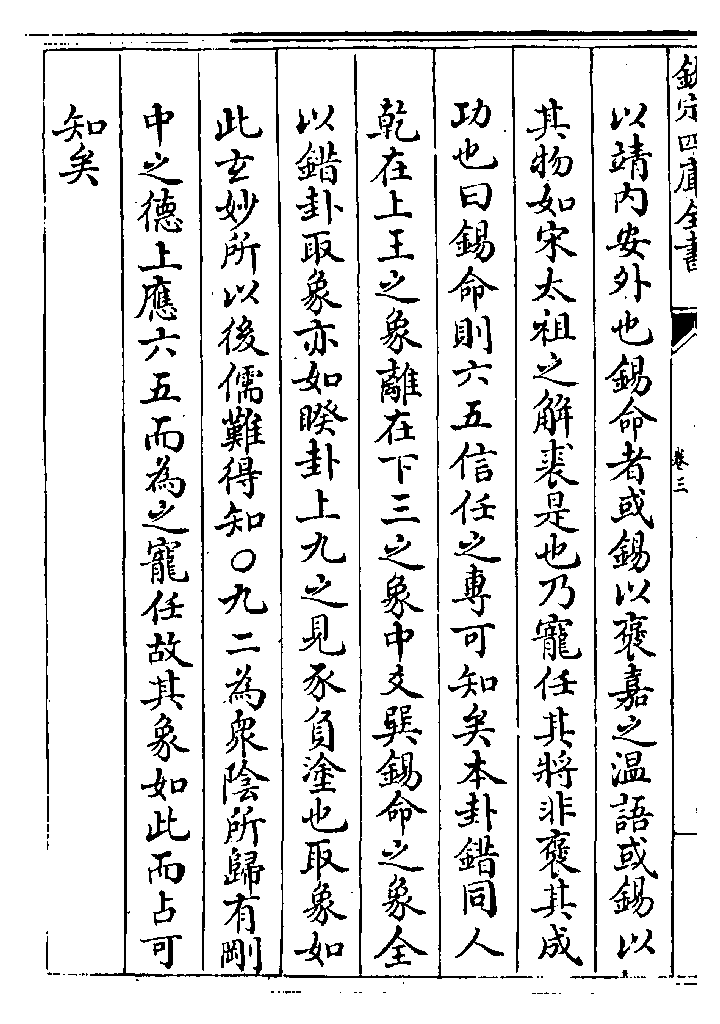 欽定四庫全書
卷三
以靖内安外也錫命者或錫以褒嘉之温語或錫以
其物如宋太祖之解裘是也乃寵任其將非褒其成
功也曰錫命則六五信任之專可知矣本卦錯同人
乾在上王之象離在下三之象中爻巽錫命之象全
以錯卦取象亦如睽卦上九之見豕負塗也取象如
此玄妙所以後儒難得知〇九二為衆陰所歸有剛
中之德上應六五而為之寵任故其象如此而占可
知矣